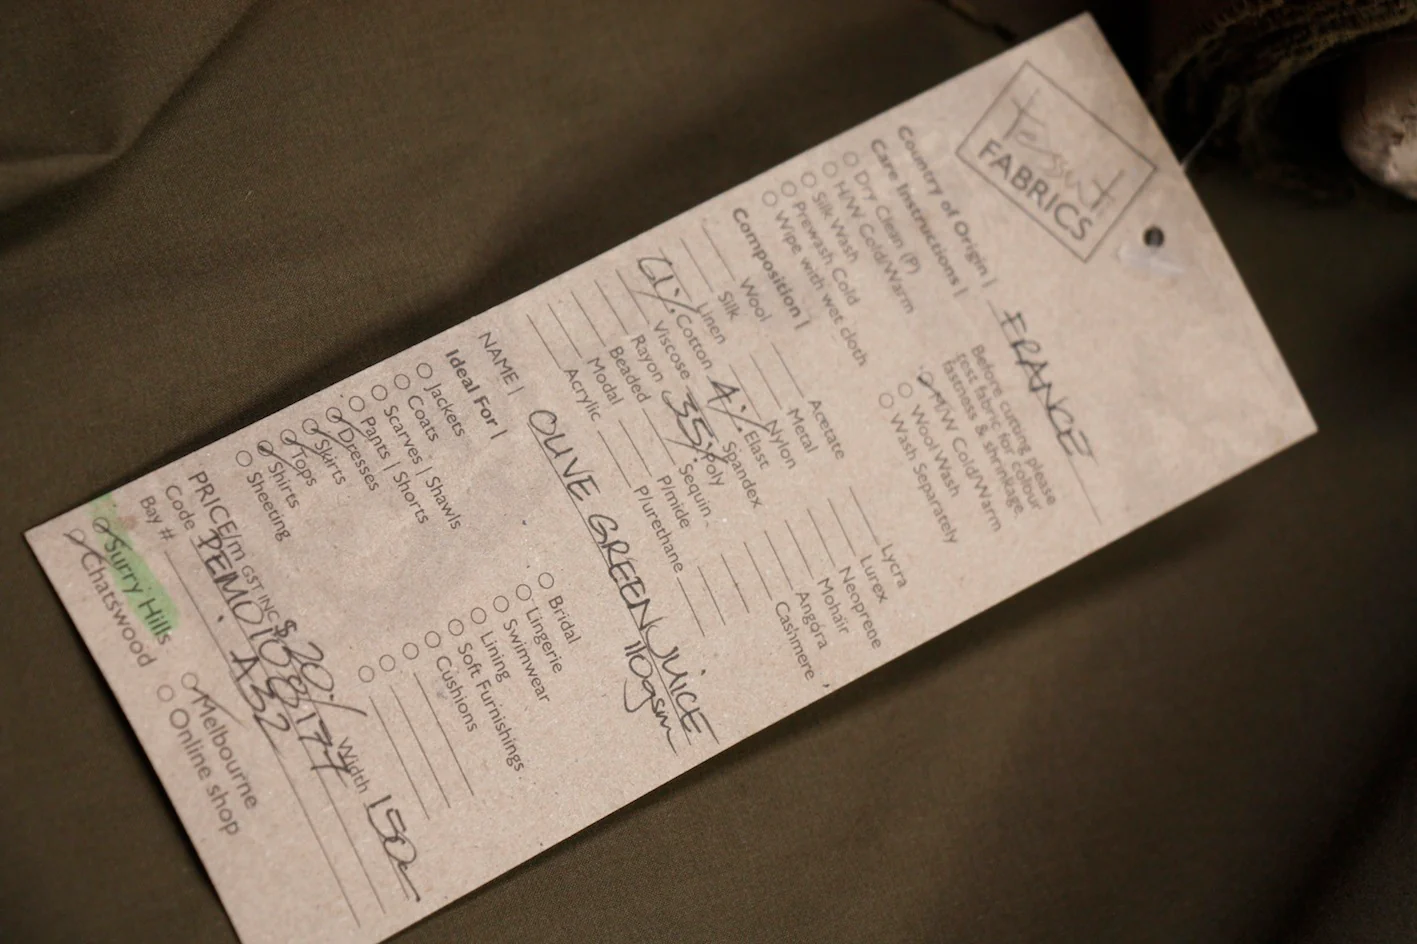 Tessuti
FABRICS
Country of Origin | FRANCE
Care Instructions |
Before cutting please
test fabric for colour
fastness & shrinkage.
Dry Clean (P)
H/W Cold/Warm
Silk Wash
Prewash Cold
Wipe with wet cloth
H/W Cold/Warm
Wool Wash
Wash Separately
Composition |
Wool
Silk
Linen
61% Cotton
Viscose
Rayon
Beaded
Modal
Acrylic
Acetate
Metal
Nylon
4% Elast
Spandex
35% Poly
Sequin
P/mide
P/urethane
Lycra
Lurex
Neoprene
Mohair
Angora
Cashmere
NAME | OLIVE GREEN JUICE
110gsm
Ideal For |
Jackets
Coats
Scarves | Shawls
Pants | Shorts
Dresses
Skirts
Tops
Shirts
Sheeting
Bridal
Lingerie
Swimwear
Lining
Soft Furnishings
Cushions
PRICE/m GST INC $20/ Width 150c
Code DEMO1008177
Bay # A32
Surry Hills
Chatswood
Melbourne
Online shop